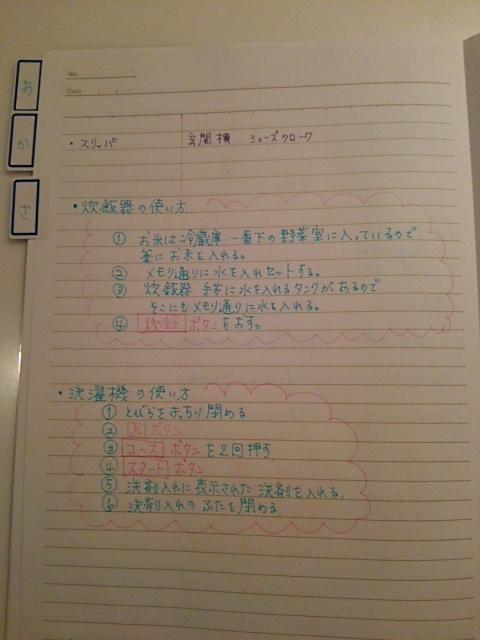 No.
Date
あ
か
さ
・スリッパ 玄関横 シューズクローク
・炊飯器の使い方
① お米は冷蔵庫 一番下の野菜室に入っているので
釜にお米を入れる。
② メモリ通りに水を入れセットする。
③ 炊飯器 手前に水を入れるタンクがあるので
そこにもメモリ通りに水を入れる。
④ 炊飯 ボタンをおす。
・洗濯機の使い方
① とびらをきっちり閉める
② 入 ボタン
③ コース ボタンを2回押す
④ スタート ボタン
⑤ 洗剤入れに表示された洗剤を入れる。
⑥ 洗剤入れのふたを閉める